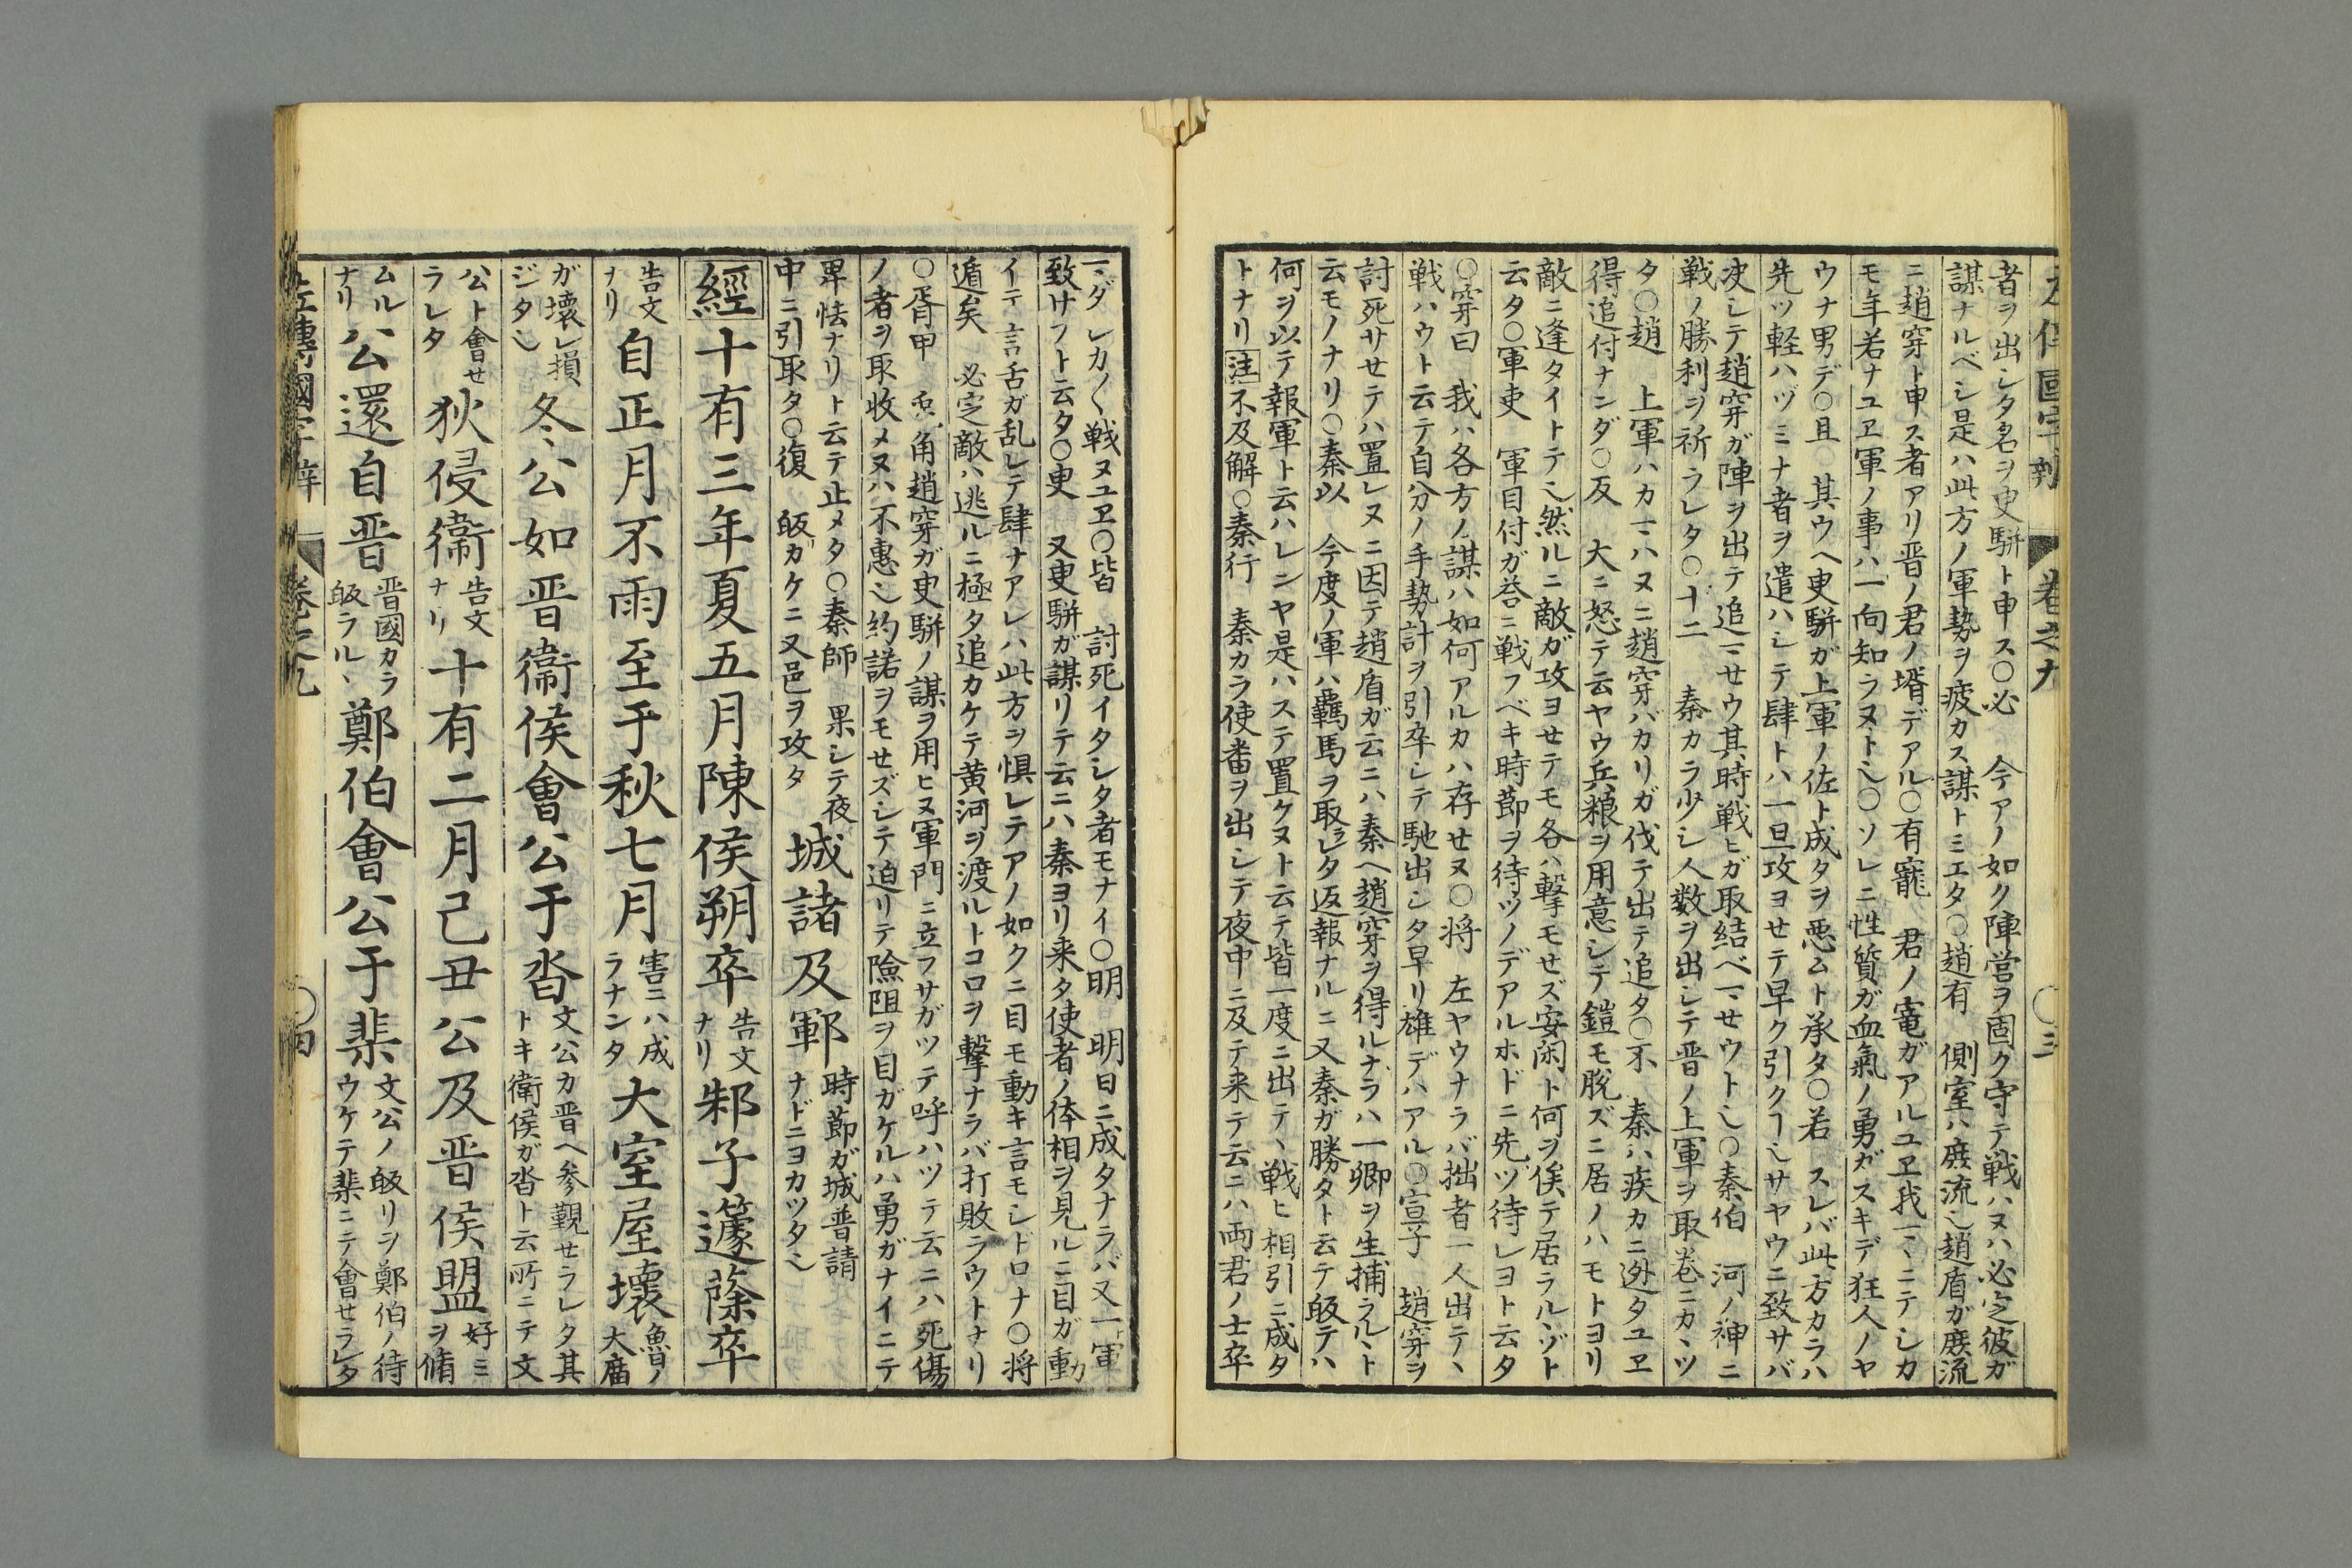 左傳國字辯 卷之九 〇三
者ヲ出シタ名ヲ臾駢ト申ス〇必 今アノ如ク陣営ヲ固ク守テ戦ハヌハ必定彼ガ
謀ナルベシ是ハ此方ノ軍勢ヲ疲カス謀トミエタ〇趙有 側室ハ庻流乄趙盾ガ庻流
ニ趙穿ト申ス者アリ晋ノ君ノ壻デアル〇有寵 君ノ寵ガアルユヱ我マヽニテシカ
モ年若ナユヱ軍ノ事ハ一向知ラヌト乄〇ソレニ性質ガ血氣ノ勇ガスキデ狂人ノヤ
ウナ男デ〇且 其ウヘ臾駢ガ上軍ノ佐ト成タヲ悪ムト承タ〇若 スレバ此方カラハ
先ヅ軽ハヅミナ者ヲ遣ハシテ肆トハ一旦攻ヨセテ早ク引クヿ乄サヤウニ致サバ
决シテ趙穿ガ陣ヲ出テ追マセウ其時戦ヒガ取結ベマセウト乄〇秦伯 河ノ神ニ
戦ノ勝利ヲ祈ラレタ〇十二 秦カラ少シ人数ヲ出シテ晋ノ上軍ヲ取巻ニカヽツ
タ〇趙 上軍ハカマハヌニ趙穿バカリガ伐テ出テ追タ〇不 秦ハ疾カニ迯タユヱ
得追付ナンダ〇反 大ニ怒テ云ヤウ兵粮ヲ用意シテ鎧モ脱ズニ居ノハモトヨリ
敵ニ逢タイトテ乄然ルニ敵ガ攻ヨセテモ各ハ撃モせズ安閑ト何ヲ俟テ居ラルヽゾト
云タ〇軍吏 軍目付ガ荅ニ戦フベキ時節ヲ待ツノデアルホドニ先ヅ待レヨト云タ
〇穿曰 我ハ各方ノ謀ハ如何アルカハ存せヌ〇将 左ヤウナラバ拙者一人出テヽ
戦ハウト云テ自分ノ手勢計ヲ引卒シテ馳出シタ早リ雄デハアル〇宣子 趙穿ヲ
討死サせテハ置レヌニ因テ趙盾ガ云ニハ秦ヘ趙穿ヲ得ルナラハ一卿ヲ生捕ラルヽト
云モノナリ〇秦以 今度ノ軍ハ羈馬ヲ取ラレタ返報ナルニ又秦ガ勝タト云テ皈テハ
何ヲ以テ報軍ト云ハレンヤ是ハステ置ケヌト云テ皆一度ニ出テヽ戦ヒ相引ニ成タ
トナリ 注 不及解〇秦行 秦カラ使番ヲ出シテ夜中ニ及テ来テ云ニハ両君ノ士卒
マダシカ〱戦ヌユヱ〇皆 討死イタシタ者モナイ〇明 明日ニ成タナラバ又一軍
致サフト云タ〇臾 又臾駢ガ謀リテ云ニハ秦ヨリ来タ使者ノ体相ヲ見ルニ目ガ動
イテ 言舌ガ乱レテ肆ナアレハ此方ヲ惧レテアノ如クニ目モ動キ言モシドロナ〇将
遁矣 必定敵ハ逃ルニ極タ追カケテ黄河ヲ渡ルトコロヲ撃ナラバ打敗ラウトナリ
〇胥甲 胥甲趙穿ガ臾駢ノ謀ヲ用ヒヌ軍門ニ立フサガツテ呼ハツテ云ニハ死傷
ノ者ヲ取收メヌハ不惠乄約諾ヲモせズシテ迫リテ險阻ヲ目ガケルハ勇ガナイニテ
卑怯ナリト云テ止メタ〇秦師 果シテ夜
中ニ引取タ〇復 皈ガケニ又邑ヲ攻タ 城諸及鄆 時節ガ城普請
ナドニヨカツタ乄
經 十有三年夏五月陳侯朔卒 告文
ナリ 邾子籧蒢卒
告文
ナリ 自正月不雨至于秋七月 害ニハ成
ラナンタ 大室屋壊 魯ノ
大庿
が壊レ損
ジタ乄 冬、公如晋衞侯會公于沓 文公カ晋ヘ参覲せラレタ其
トキ衛侯ガ沓ト云所ニテ文
公ト會せ
ラレタ 狄侵衞 告文
ナリ 十有二月己丑公及晋侯盟 好ミ
ヲ脩
ムル
ナリ 公還自晋 晋國カラ
皈ラルヽ 鄭伯會公于棐 文公ノ皈リヲ鄭伯ノ待
ウケテ棐ニテ會せラレタ
左傳國字辯 卷之九 〇四